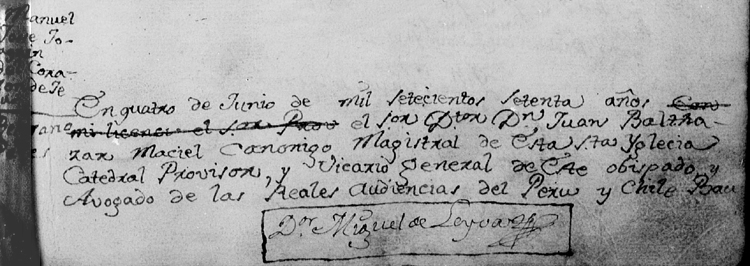 Manuel
Jose Jo-
Cora-
de Je
En quatro de Junio de mil setecientos setenta años Con
mi licencia el s.or Prov el s.or D.tor D.n Juan Baltha-
zar Maciel Canonigo Magistral de esta S.ta Yglecia
Catedral Provisor, y Vicario General de este obispado, y
Avogado de las Reales Audiencias del Peru y Chile Bau
D.or Miguel de Leyva